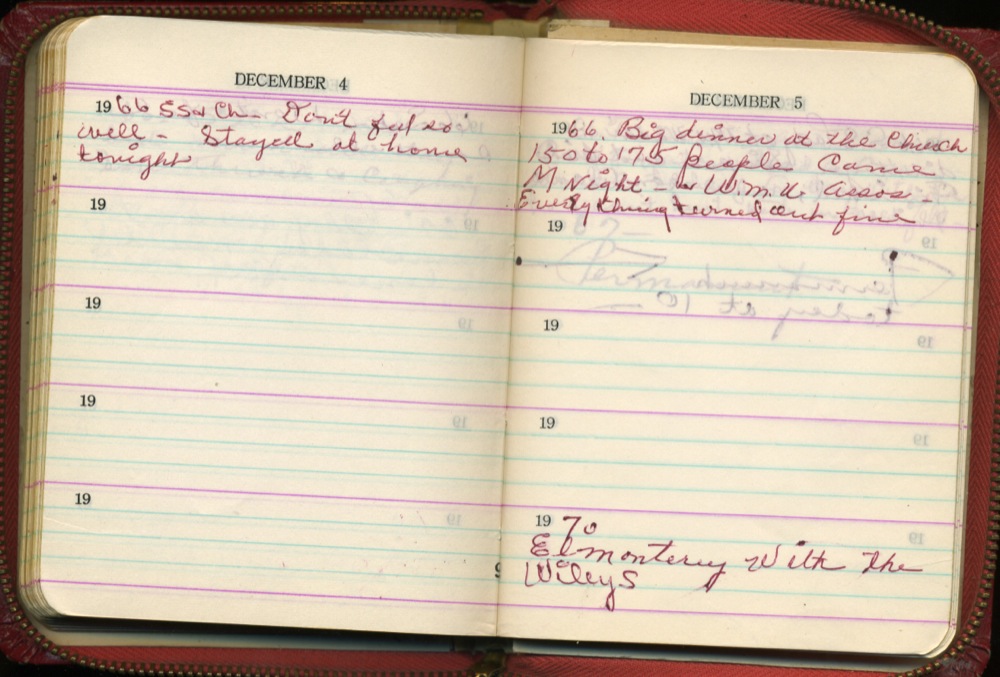 DECEMBER 4
1966 SS & Ch- Don't feel so
well - Stayed at home
tonight
19
19
19
19
DECEMBER 5
1966. Big dinner at the Church
150 to 175 people Came
M Night - W.M.U. Assos -
Everything turned out fine
19
19
19
1970
Elmonterey With the
Wileys